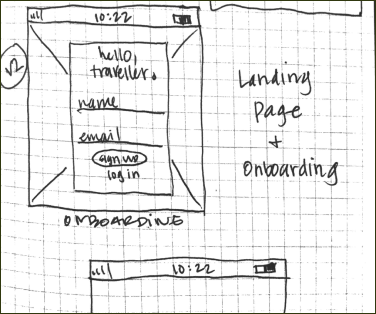 10:22
hello,
traveller.
name
email
sign up
log in
ONBOARDING
v2
Landing
Page
+
Onboarding
10:22